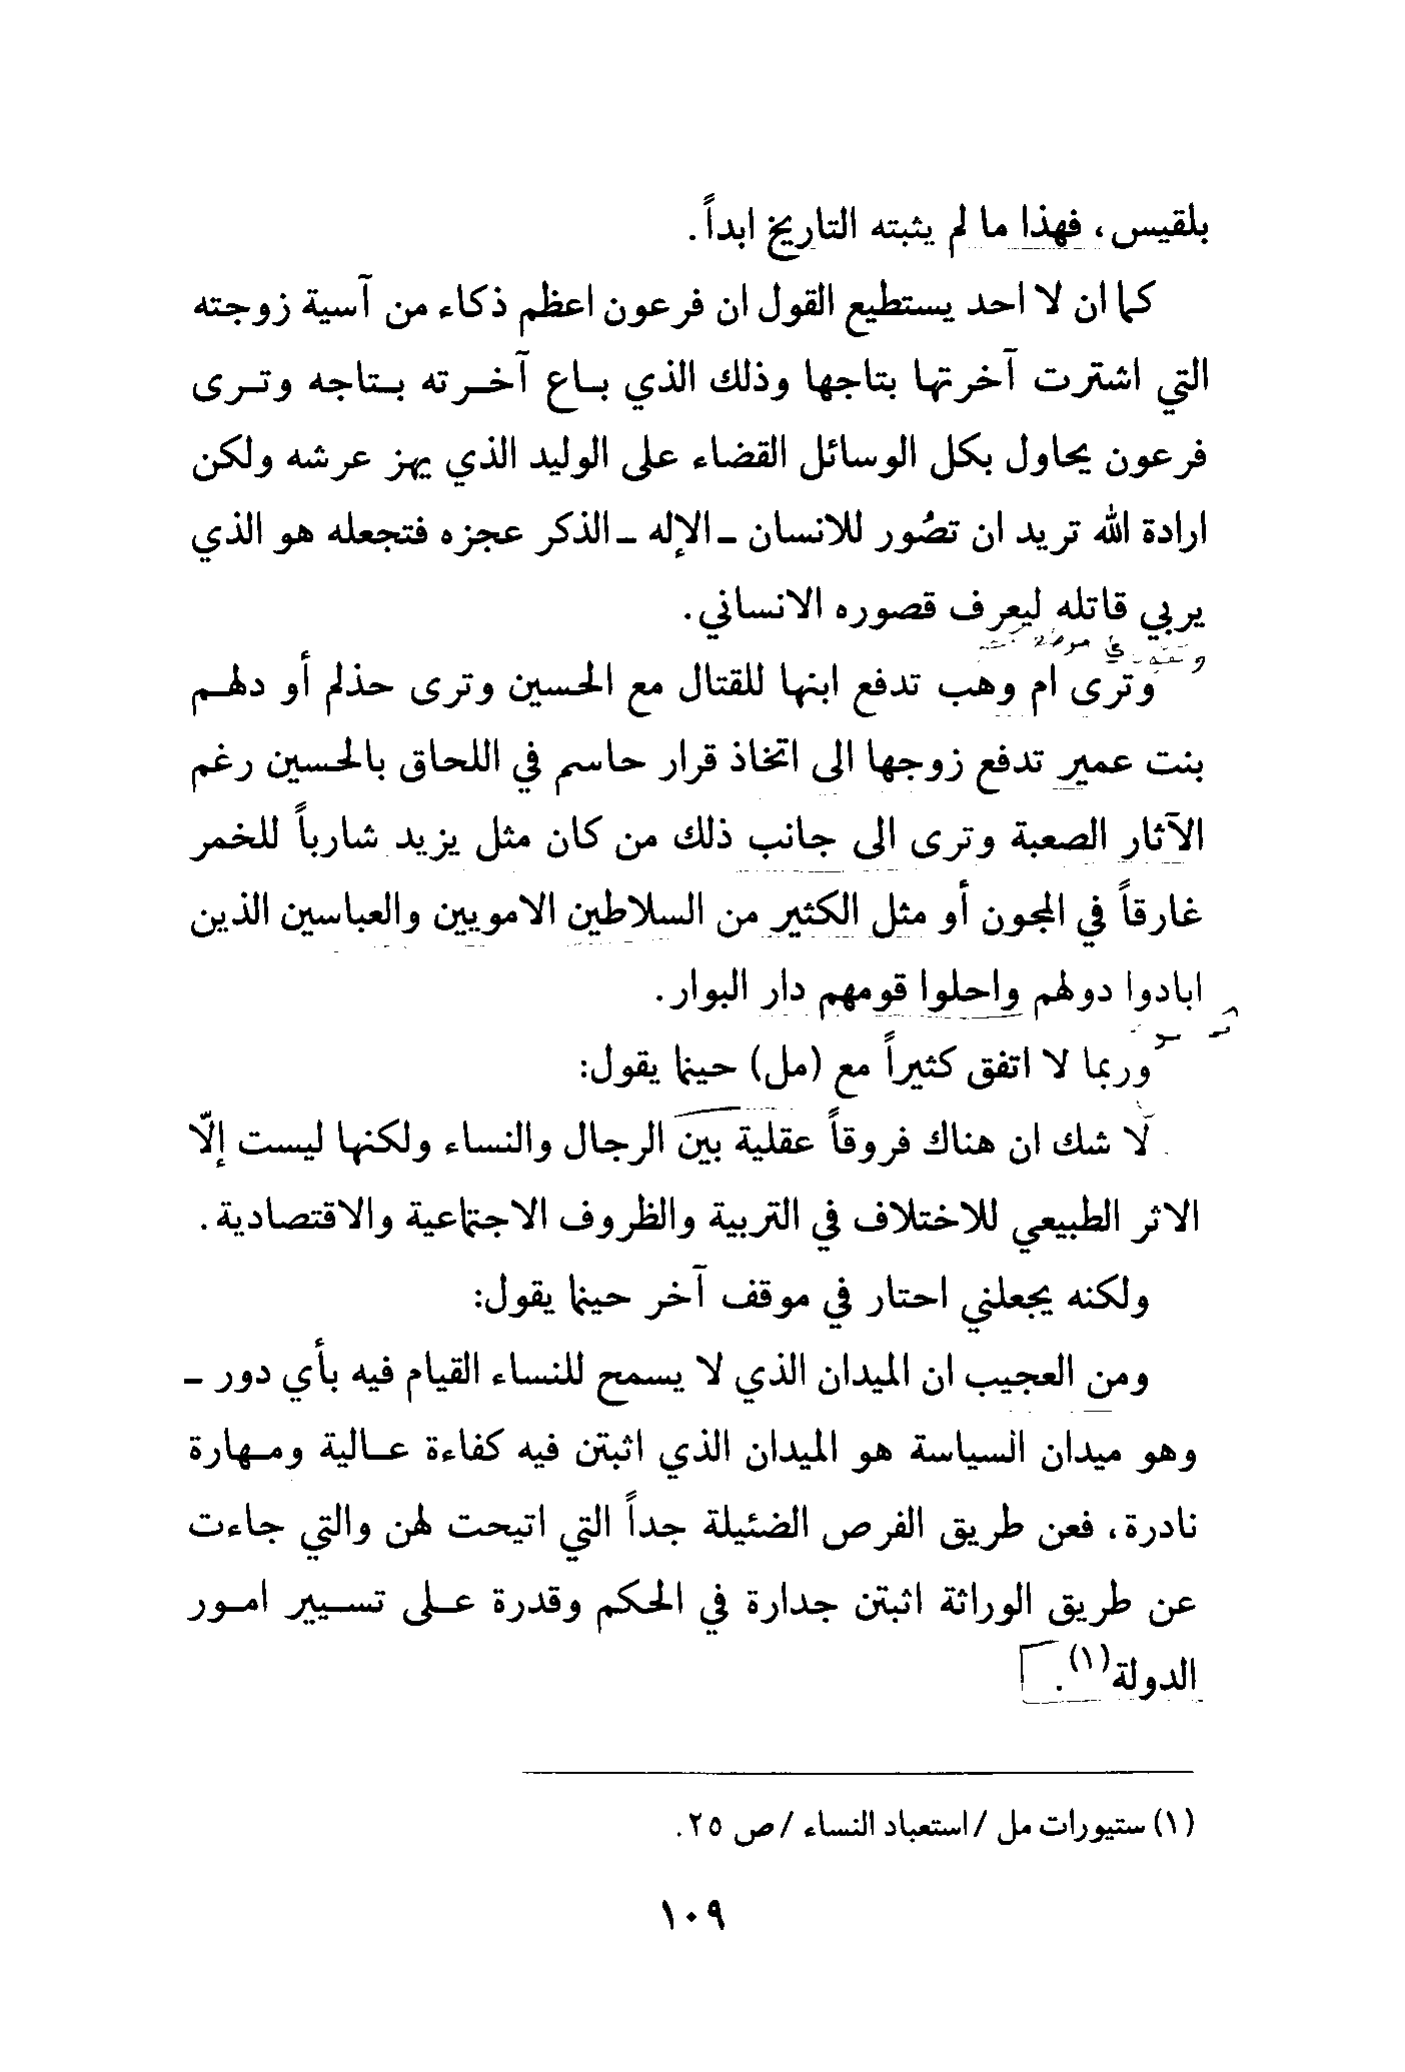 بلقيس، فهذا ما لم يثبته التاريخ ابداً.
كما ان لا احد يستطيع القول ان فرعون اعظم ذكاء من آسية زوجته
التي اشترت آخرتها بتاجها وذلك الذي باع آخرته بتاجه وترى
فرعون يحاول بكل الوسائل القضاء على الوليد الذي يهز عرشه ولكن
ارادة الله تريد ان تصُور للانسان ـ الإله ـ الذكر عجزه فتجعله هو الذي
يربي قاتله ليعرف قصوره الانساني.
وترى ام وهب تدفع ابنها للقتال مع الحسين وترى حذلم أو دلهم
بنت عمير تدفع زوجها الى اتخاذ قرار حاسم في اللحاق بالحسين رغم
الآثار الصعبة وترى الى جانب ذلك من كان مثل يزيد شارباً للخمر
غارقاً في المجون أو مثل الكثير من السلاطين الامويين والعباسين الذين
ابادوا دولهم واحلوا قومهم دار البوار.
وربما لا اتفق كثيراً مع (مل) حينما يقول:
لا شك ان هناك فروقاً عقلية بين الرجال والنساء ولكنها ليست إلّا
الاثر الطبيعي للاختلاف في التربية والظروف الاجتماعية والاقتصادية.
ولكنه يجعلني احتار في موقف آخر حينما يقول:
ومن العجيب ان الميدان الذي لا يسمح للنساء القيام فيه بأي دور ـ
وهو ميدان السياسة هو الميدان الذي اثبتن فيه كفاءة عالية ومهارة
نادرة، فعن طريق الفرص الضئيلة جداً التي اتيحت لهن والتي جاءت
عن طريق الوراثة اثبتن جدارة في الحكم وقدرة على تسيير امور
الدولة(١).
(١) ستيورات مل / استعباد النساء / ص ٢٥.
١٠٩